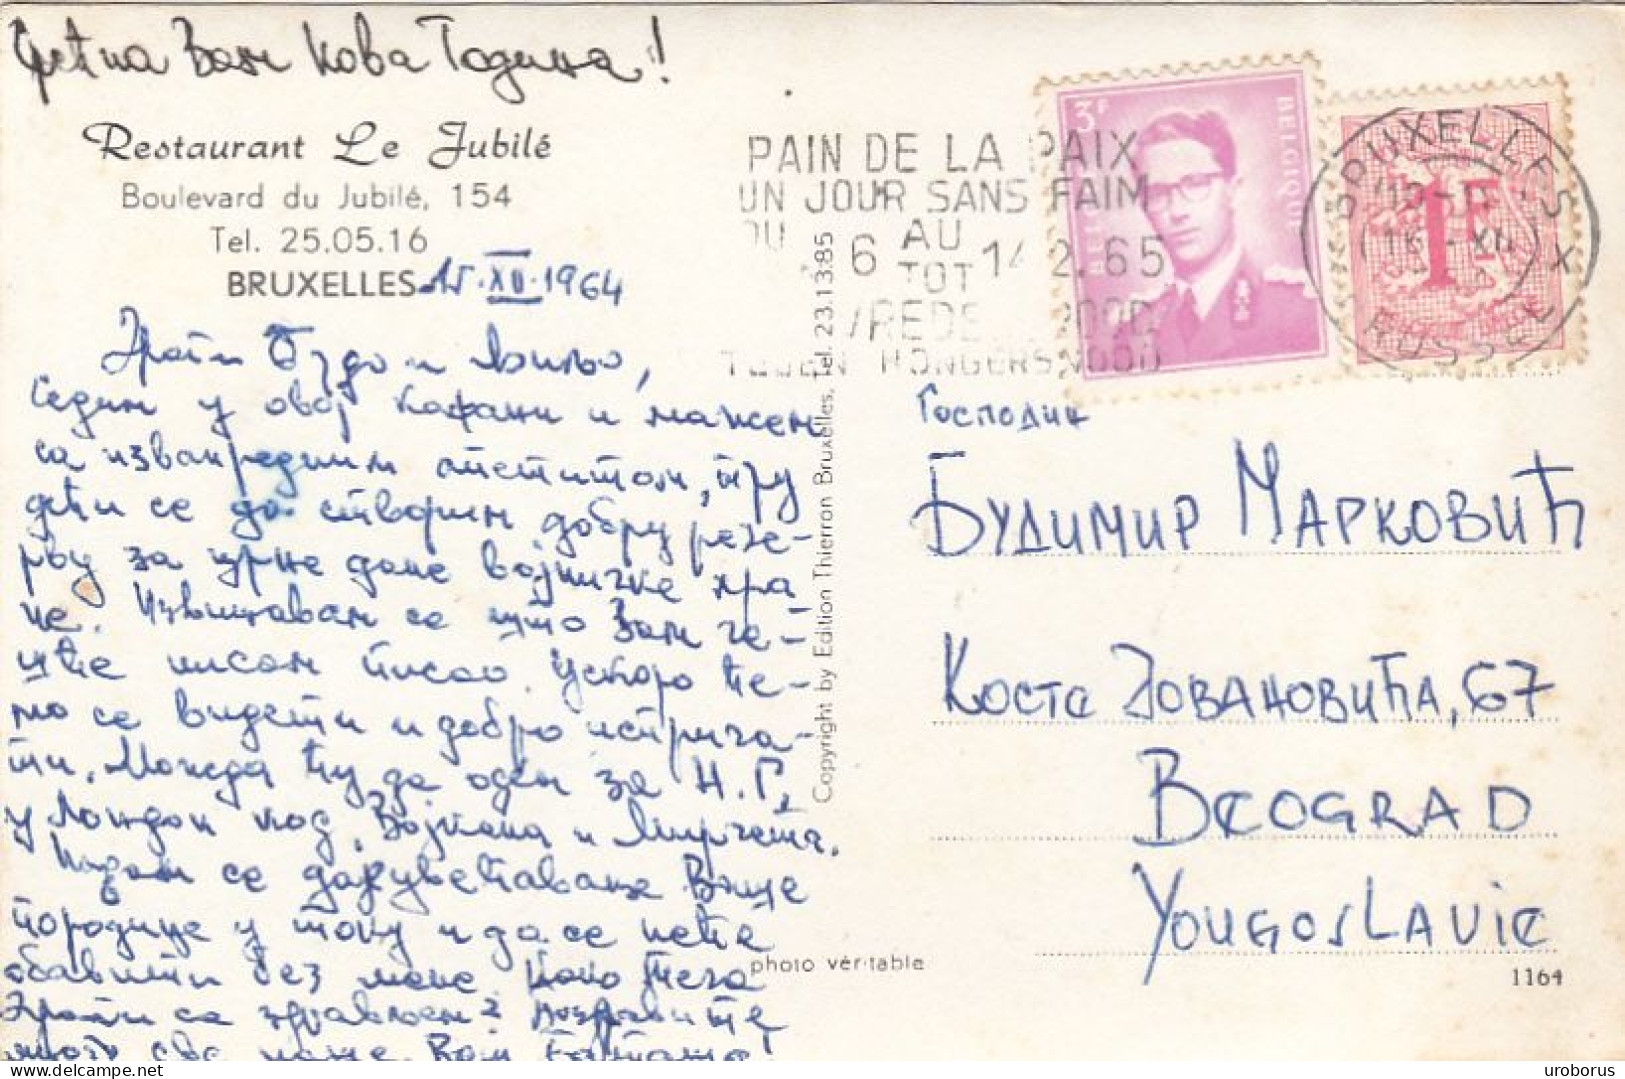 Сретна Вам Нова Година!
Restaurant Le Jubilé
Boulevard du Jubilé, 154
Tel. 25.05.16
BRUXELLES
15.XII.1964
Драги Будо и
Седим у овој кафани и
са изванредним апетитом, тру
дећи се да створим добру резе-
рву за црне дане војничке хра
не. Извињавам се што Вам че-
шће нисам писао. Ускоро ће-
мо се видети и добро исприча-
ти. Можда ћу да одем за Н.Г.
у Лондон код Војкана и
Надам се да је увећавање Ваше
породице у току и да се неће
обавити без мене. Како
Драги са здрављем? Поздравите
много све наше. Ваш
PAIN DE LA PAIX
UN JOUR SANS FAIM
DU 6 AU TOT 14 2.65
VREDESBROOD
TEGEN HONGERSNOOD
3F
BELGIQUE
1F
BRUXELLES X
BRUSSEL
Copyright by Edition Thierron Bruxelles, Tel. 23.13.85
Господин
Будимир Марковић
Косте Јовановића, 67
BEOGRAD
YOUGOSLAVIE
photo véritable
1164
uroborus